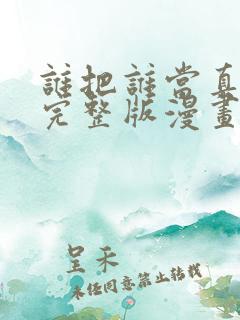 誰把誰當真
完整版漫畫
呈禾
未任同意禁止转载